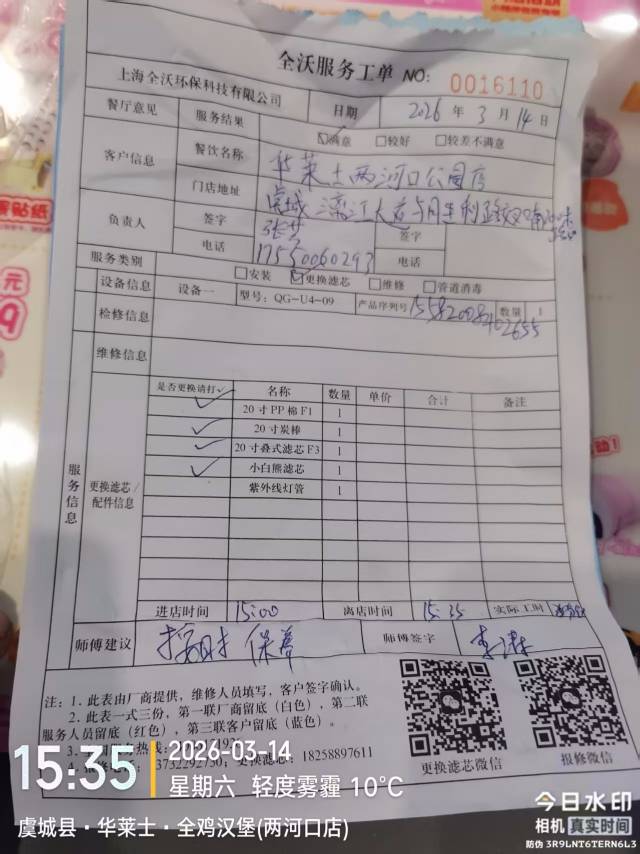 全沃服务工单 NO: 0016110
上海全沃环保科技有限公司 日期 2026 年 3 月 14 日
餐厅意见 服务结果 ☑满意 □较好 □较差不满意
客户信息 餐饮名称 华莱士两河口公园店
门店地址 虞城漓江大道与
负责人 签字 签字
电话 17550060293 电话
服务类别 □安装 ☑更换滤芯 □维修 □管道消毒
设备信息 设备一 型号: QG-U4-09 产品序列号 数量 1
检修信息
维修信息
服务信息
更换滤芯/配件信息
是否更换请打✓ 名称 数量 单价 合计 备注
✓ 20寸PP棉F1 1
✓ 20寸炭棒 1
✓ 20寸叠式滤芯F3 1
✓ 小白熊滤芯 1
紫外线灯管 1
进店时间 15:00 离店时间 15:35 实际工时
师傅建议 按时保养 师傅签字
注: 1. 此表由厂商提供，维修人员填写，客户签字确认。
2. 此表一式三份，第一联厂商留底（白色），第二联
服务人员留底（红色），第三联客户留底（蓝色）。
3. 热线:
4. 3732292750; 更换滤芯: 18258897611
更换滤芯微信 报修微信
15:35 2026-03-14
星期六 轻度雾霾 10°C
虞城县·华莱士·全鸡汉堡(两河口店)
今日水印
相机 真实时间
防伪 3R9LNT6TERN6L3